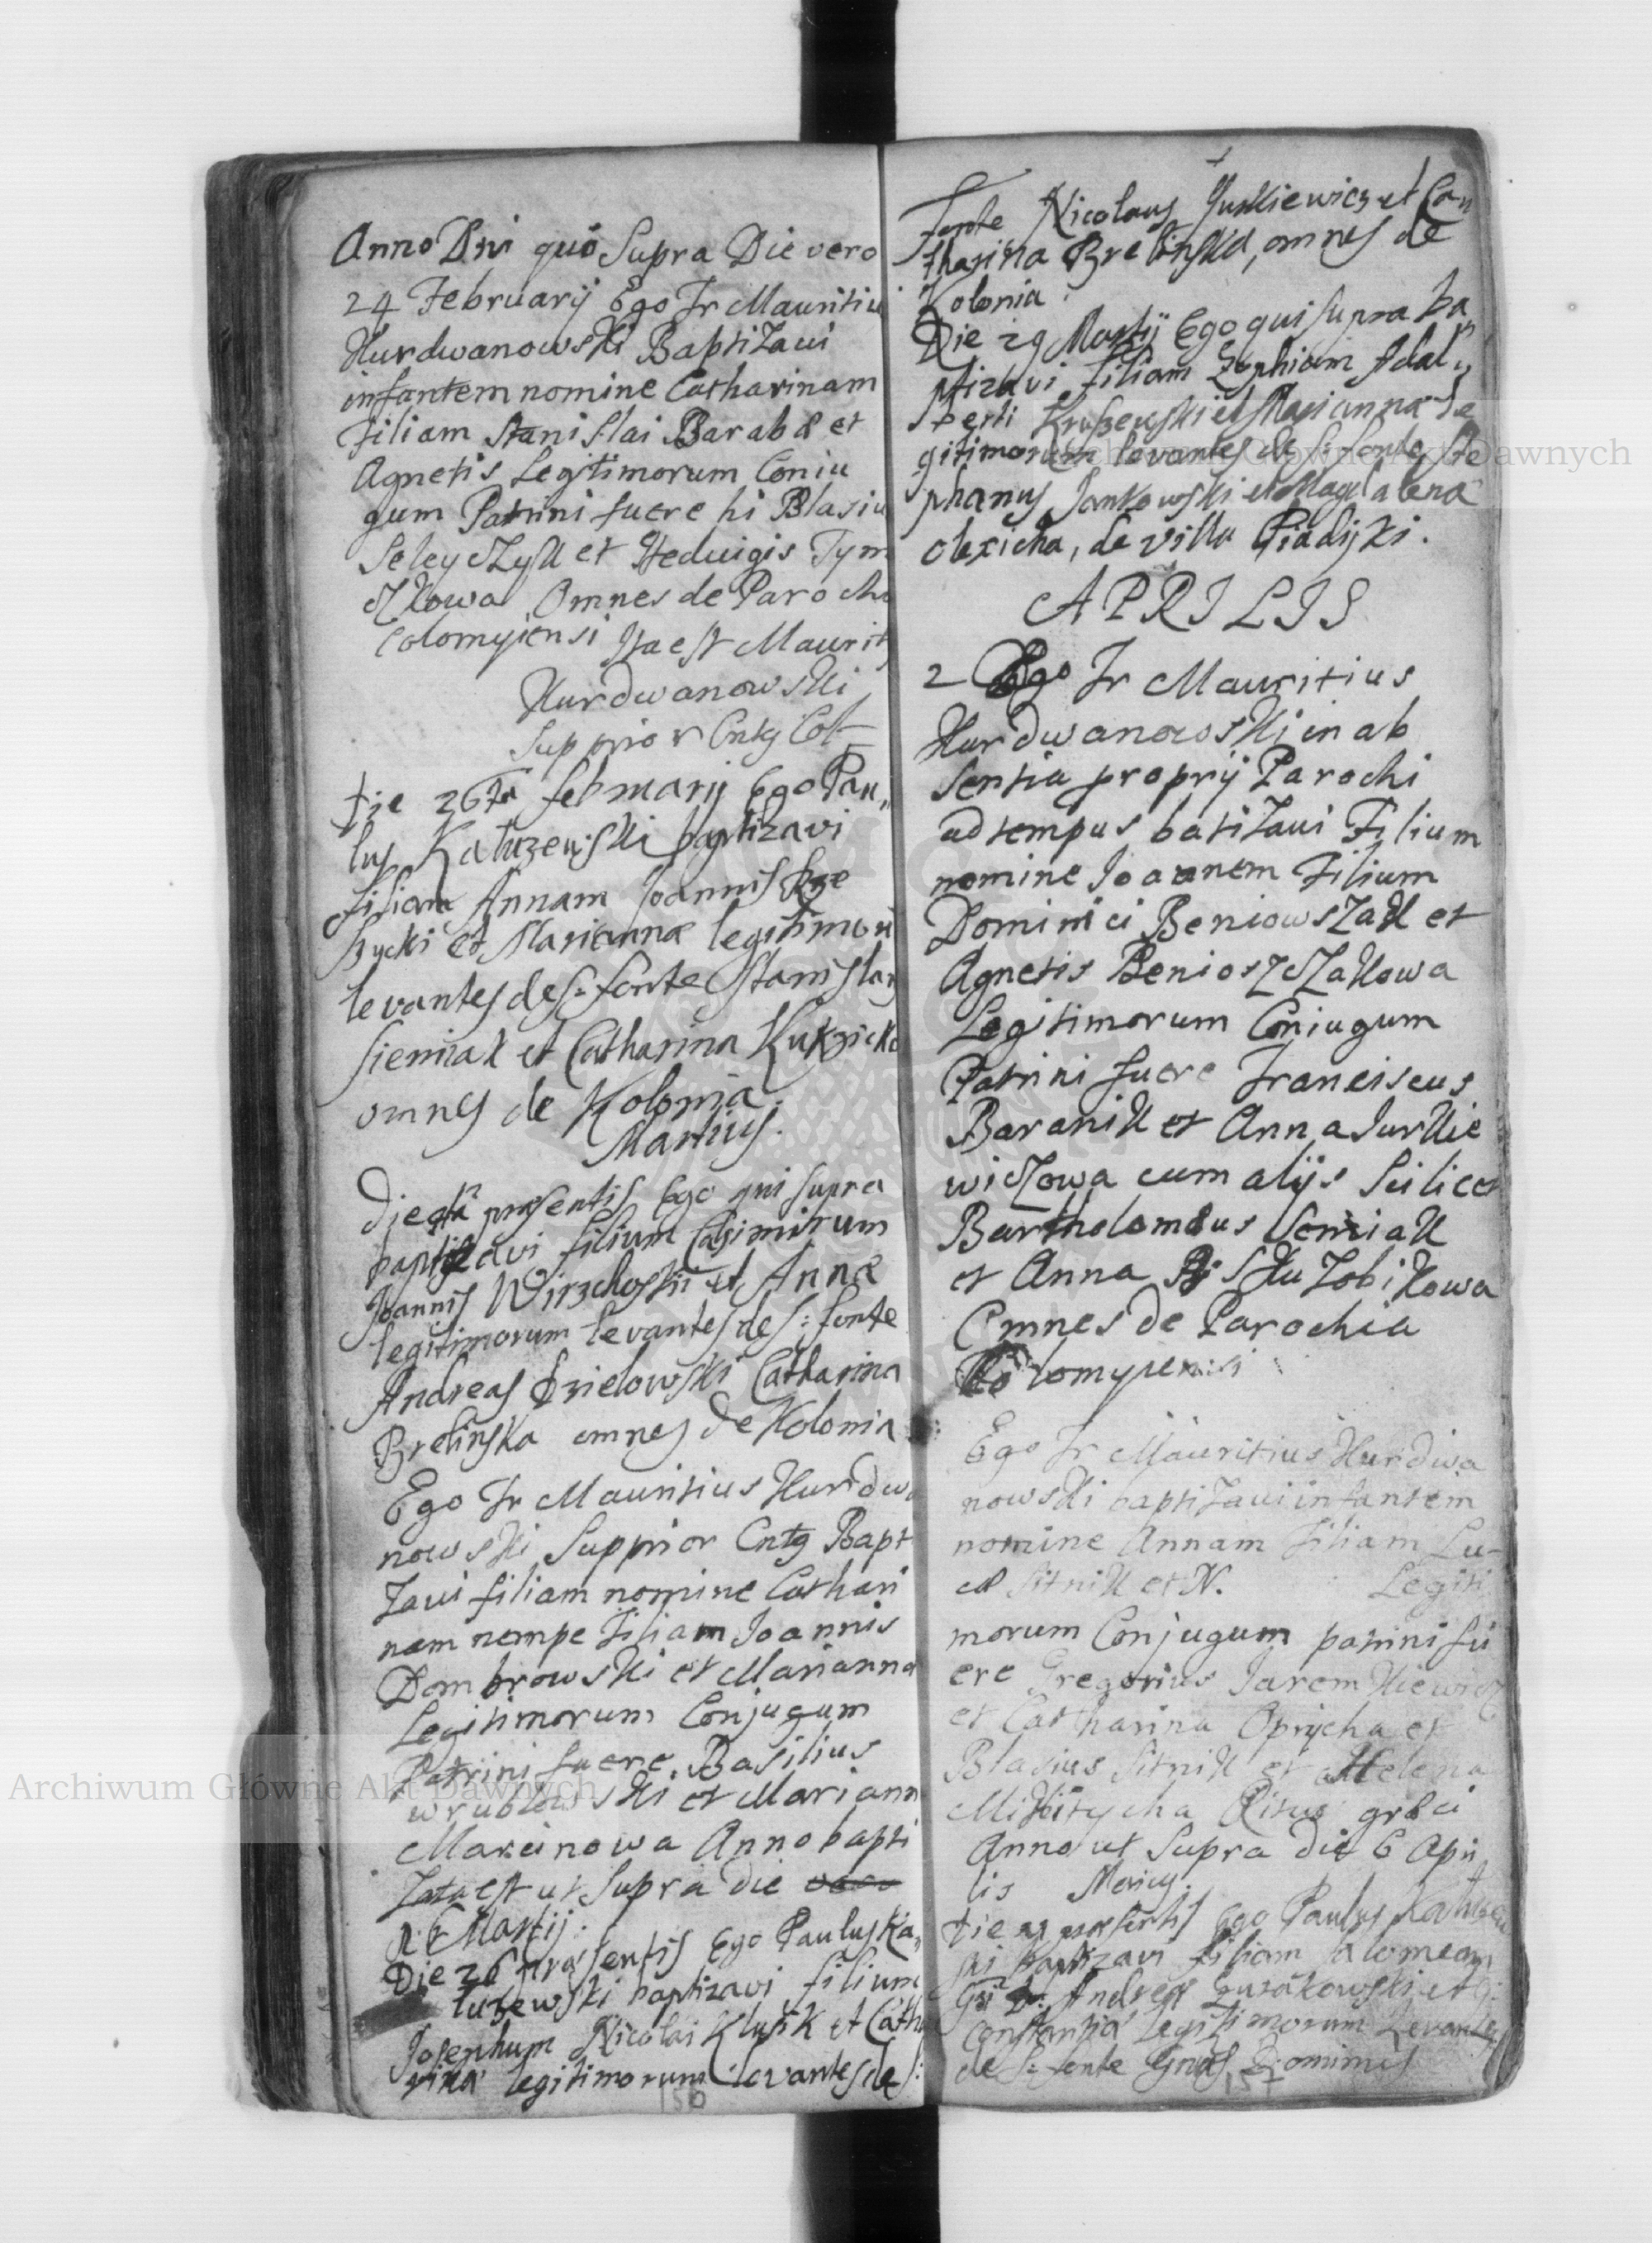 Anno Dni quo Supra Die vero
24 February Ego Fr Mauritiu
Hurdwanowski Baptizavi
infantem nomine Catharinam
Filiam Stanislai Baraba et
Agnetis Legitimorum Coniu
gum Patrini fuere hi Blasiu
et Hedvigis Tym
czkowa Omnes de Parochi
Colomyiensi Ita est Maurit
Hurdwanowski
Supprior Cntg Col
Die 26ta februarij Ego Pau„
lus Kaluzewski baptizavi
filiam Annam Joannis
et Mariannæ legitimoru
levantes de S: fonte Stanislaus
Sieniak et Catharina
omnes de Kolonia.
Martius.
Die præsentis Ego qui supra
baptizavi filium Casimirum
Joannis Wirzchoskii et Annæ
legitimorum levantes de S: fonte
Andreas Dzielowski Catharina
Brelinska omnes de Kolonia
Ego Fr Mauritius Hurdwa
nowski Supprior Cntg Bapt
zavi filiam nomine Cathari
nam nempe Filiam Joannis
Dombrowski et Marianna
Legitimorum Conjugum
Patrini fuere Basilius
wrublowski et Mariann
Marcinowa Anno bapti
zata est ut Supra die
Martij.
Die 26 præsentis Ego Paulus Ka„
luzewski baptizavi filium
Josephum Nicolai Klusik et Catha
rina legitimorum levantes de S:
156
Fonte Nicolaus Juskiewicz et Ca„
tharina Brelinska, omnes de
Kolonia.
Die 29 Martij Ego qui supra ba„
ptizavi filiam Zophiam Adal„
berti Kruszewski et Marianna Le
gitimorum levantes de S: fonte Ste
phanus Jankowski et Magdalena
olexicha, de villa Piadyki.
APRILIS
2 Ego Fr Mauritius
Hurdwanowski in ab
sentia proprij Parochi
ad tempus batizavi Filium
nomine Joannem Filium
Dominici Beniowszak et
Agnetis
Legitimorum Coniugum
Patrini fuere Franciscus
Baranik et Anna Jurkie
wiczowa cum alijs Scilicet
Bartholomæus Semiak
et Anna
Omnes de Parochia
Kolomyiensi
Ego Fr Mauritius Hurdwa
nowski baptizavi infantem
nomine Annam Filiam Lu-
cæ Sitnik et N. Legiti
morum Conjugum patrini fu
ere Gregorius Jaremkiewicz
et Catharina Oprycha et
Blasius Sitnik et Helena
Mikitycha Ritus græci
Anno ut Supra die 6 Apri
lis Maius.
Die præsentis Ego Paulus Kaluzew
ski baptizavi filiam Salomeam
Andreæ et G:
Constantia Legitimorum Levantes
de S: fonte Dominus
157
Archiwum Główne Akt Dawnych
Archiwum Główne Akt Dawnych